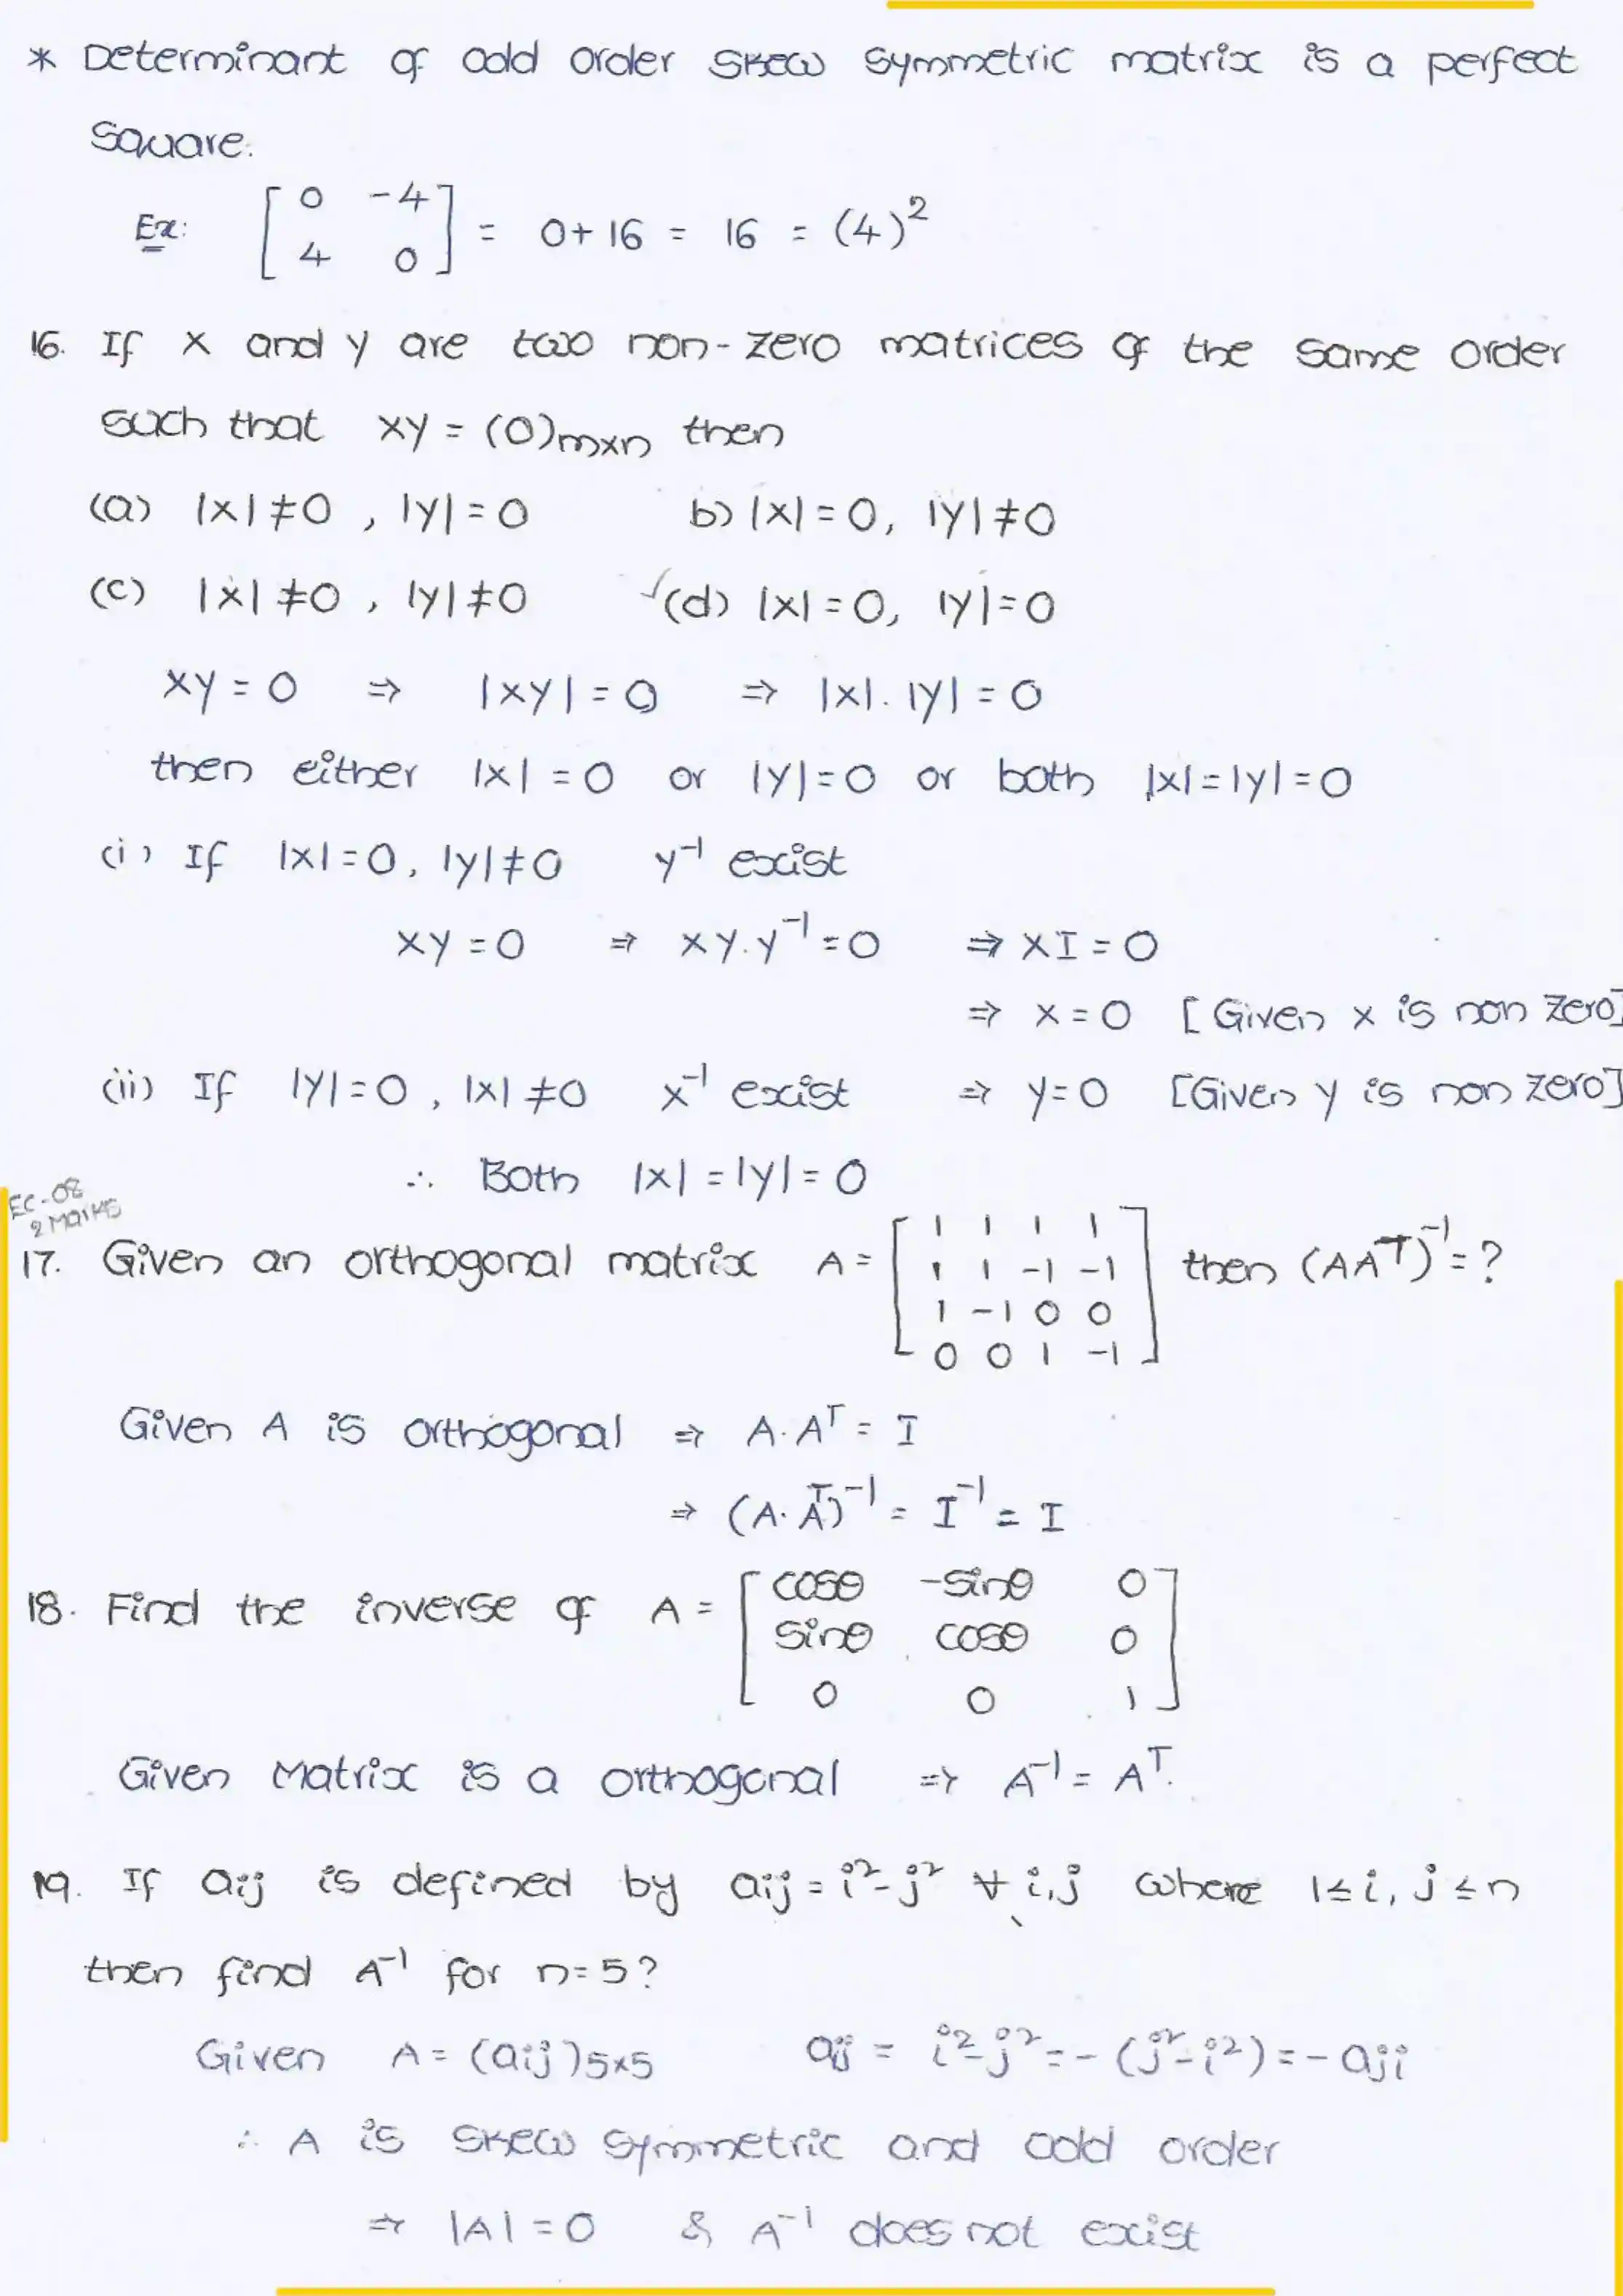 * Determinant of odd order skew symmetric matrix is a perfect
square.
Ex: [0 -4; 4 0] = 0+16 = 16 = (4)²
16. If X and Y are two non-zero matrices of the same order
such that XY = (0)m×n then
(a) |X| ≠ 0 , |Y| = 0 b) |X| = 0, |Y| ≠ 0
(c) |X| ≠ 0 , |Y| ≠ 0 ✓(d) |X| = 0, |Y| = 0
XY = 0 ⇒ |XY| = 0 ⇒ |X|.|Y| = 0
then either |X| = 0 or |Y| = 0 or both |X| = |Y| = 0
(i) If |X| = 0, |Y| ≠ 0 Y⁻¹ exist
XY = 0 ⇒ XY.Y⁻¹ = 0 ⇒ XI = 0
⇒ X = 0 [Given X is non zero]
(ii) If |Y| = 0, |X| ≠ 0 X⁻¹ exist ⇒ Y = 0 [Given Y is non zero]
∴ Both |X| = |Y| = 0
EC-08
2 Marks
17. Given an orthogonal matrix A = [1 1 1 1; 1 1 -1 -1; 1 -1 0 0; 0 0 1 -1] then (AAᵀ)⁻¹ = ?
Given A is orthogonal ⇒ A.Aᵀ = I
⇒ (A.Aᵀ)⁻¹ = I⁻¹ = I
18. Find the inverse of A = [cosθ -sinθ 0; sinθ cosθ 0; 0 0 1]
Given Matrix is a orthogonal ⇒ A⁻¹ = Aᵀ.
19. If aij is defined by aij = i²-j² ∀ i,j where 1≤i, j≤n
then find A⁻¹ for n=5?
Given A = (aij)5×5 aij = i²-j² = -(j²-i²) = -aji
∴ A is skew symmetric and odd order
⇒ |A| = 0 & A⁻¹ does not exist